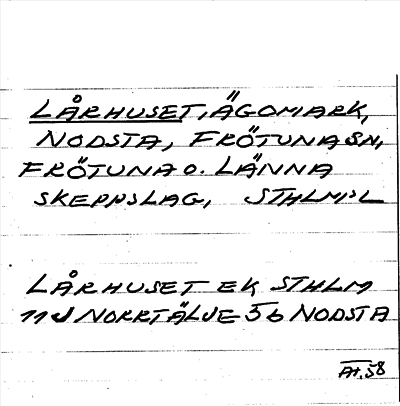 LÅRHUSET, ÄGOMARK,
NODSTA, FRÖTUNA SN,
FRÖTUNA O. LÄNNA
SKEPPSLAG, STHLMS L
LÅRHUSET EK STHLM
11J NORRTÄLJE 5b NODSTA
58